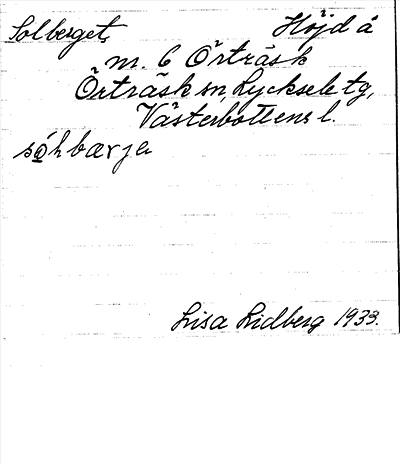 Solberget, Höjd å
m. 6 Örträsk
Örträsk sn, Lycksele tg,
Västerbottens l.
sǫ́hbærje
Lisa Lidberg 1933.